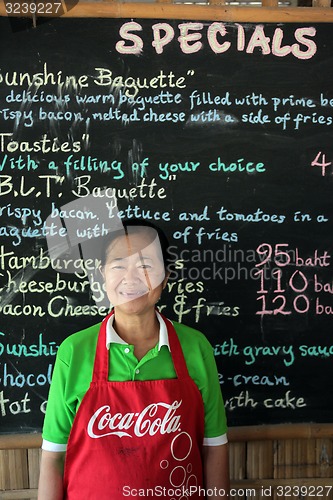 Specials
Sunshine Baguette"
delicious warm baguette filled with prime be
rispy bacon, melted cheese with a side of fries
Toasties"
With a filling of your choice
4
B.L.T." Baguette"
rispy bacon, lettuce and tomatoes in a
baguette with of fries
Hamburger fries 95 baht
Cheeseburger fries 110 baht
Bacon Cheese & fries 120 baht
Sunshi with gravy sau
chocol ce-cream
Hot with cake
Coca-Cola